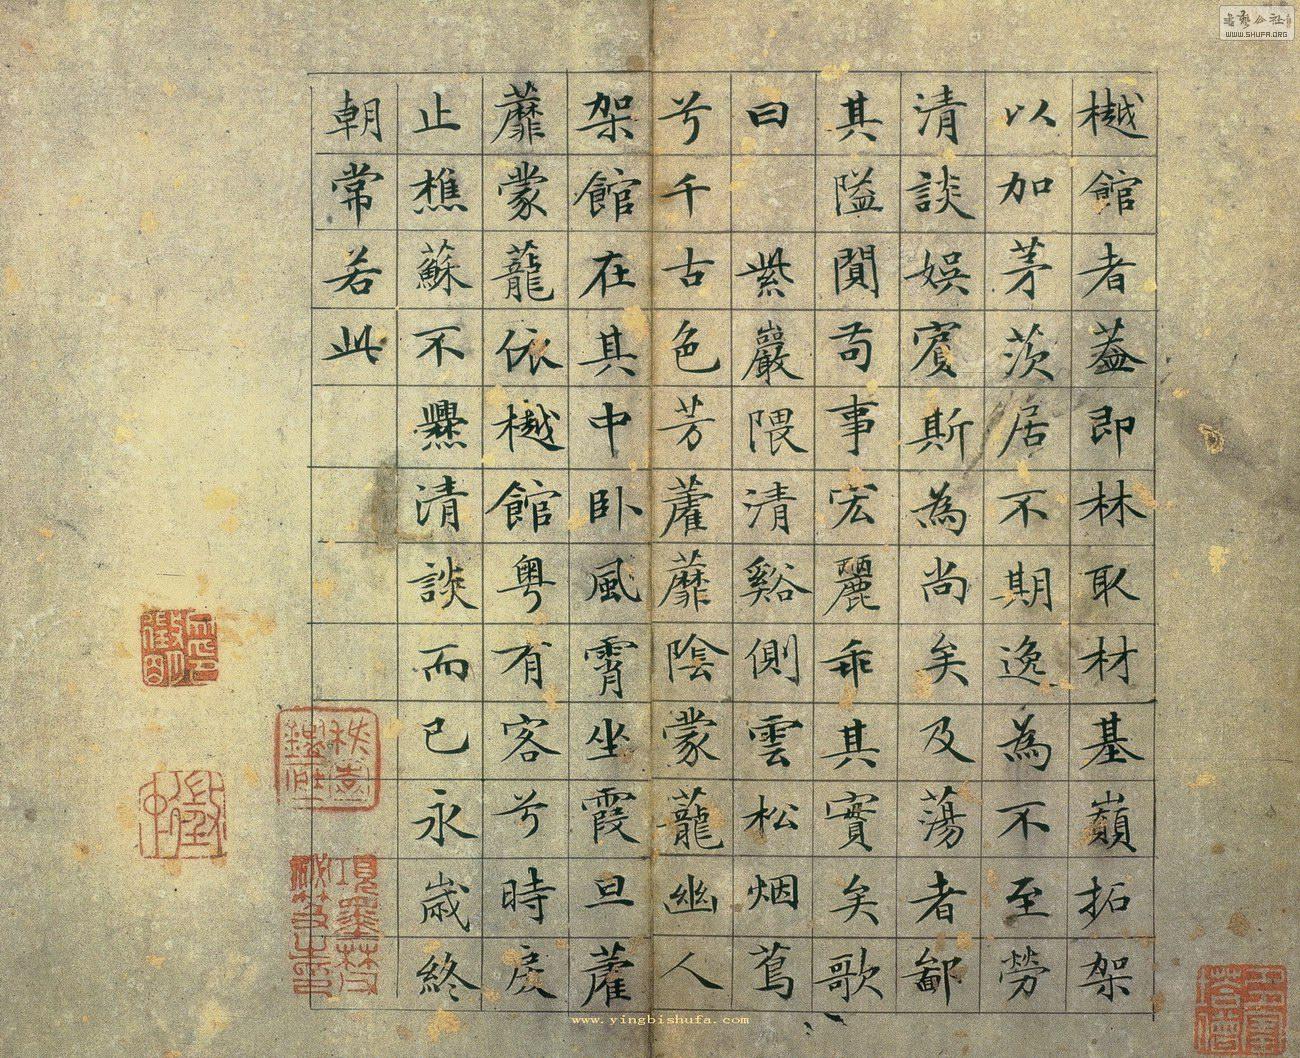 樾館者葢即林取材基巔拓架
以加茅茨居不期逸為不至勞
清談娛賓斯為尚矣及蕩者鄙
其隘閴苟事宏麗乖其實矣歌
曰 紫巖隈清谿側雲松烟蔦
兮千古色芳藿蘼陰蒙蘢幽人
架館在其中卧風霄坐霞旦藿
蘼蒙蘢依樾館粤有客兮時戾
止樵蘇不爨清談而已永歲終
朝常若此
www.yingbishufa.com
WWW.SHUFA.ORG